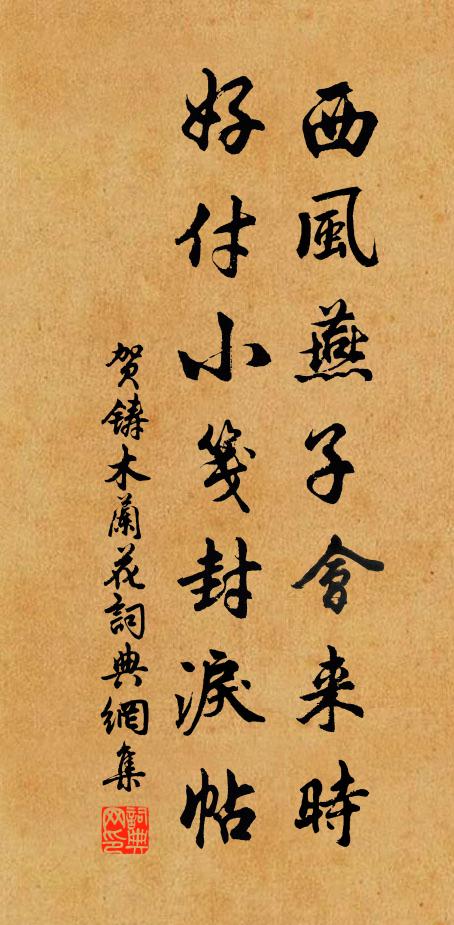 西風燕子會来時
好付小箋封淚帖
贺鑄木蘭花詞典網集
詞典网印